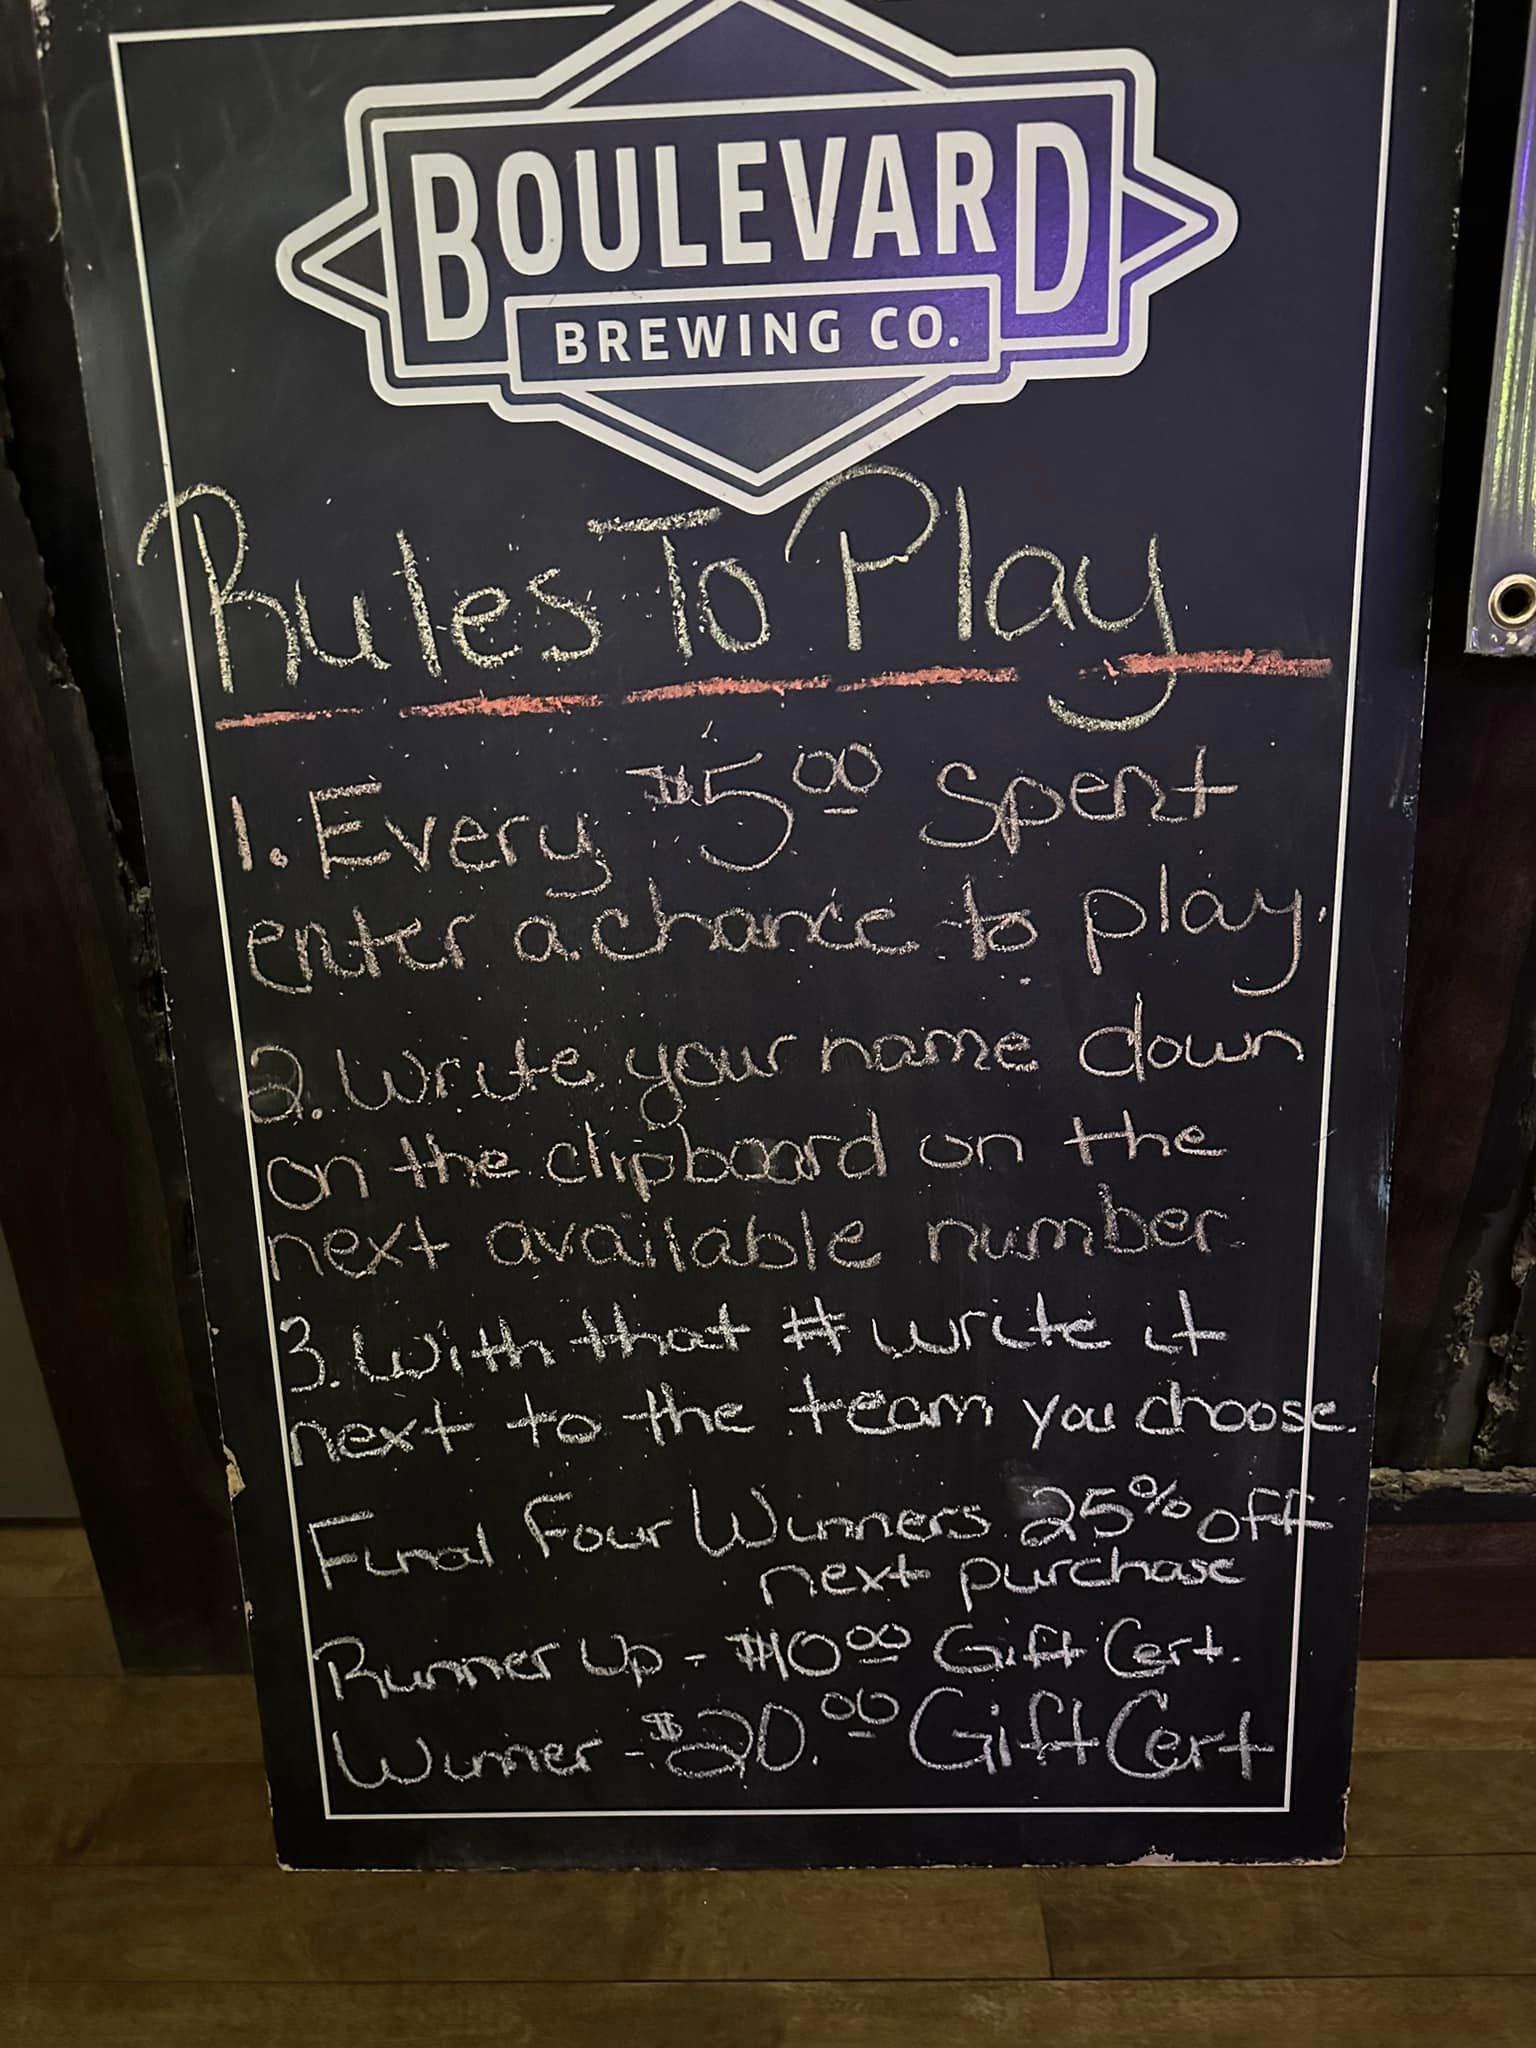 BOULEVARD
BREWING CO.
Rules To Play
1. Every $5.00 Spent
enter a chance to play.
2. Write your name down
on the clipboard on the
next available number
3. With that # write it
next to the team you choose.
Final Four Winners 25% off
next purchase
Runner Up - $10.00 Gift Cert.
Winner - $20.00 Gift Cert